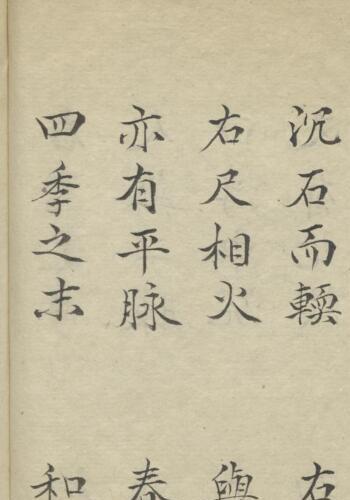 沉石而輭 右
右尺相火 與
亦有平脉 春
四季之末 和